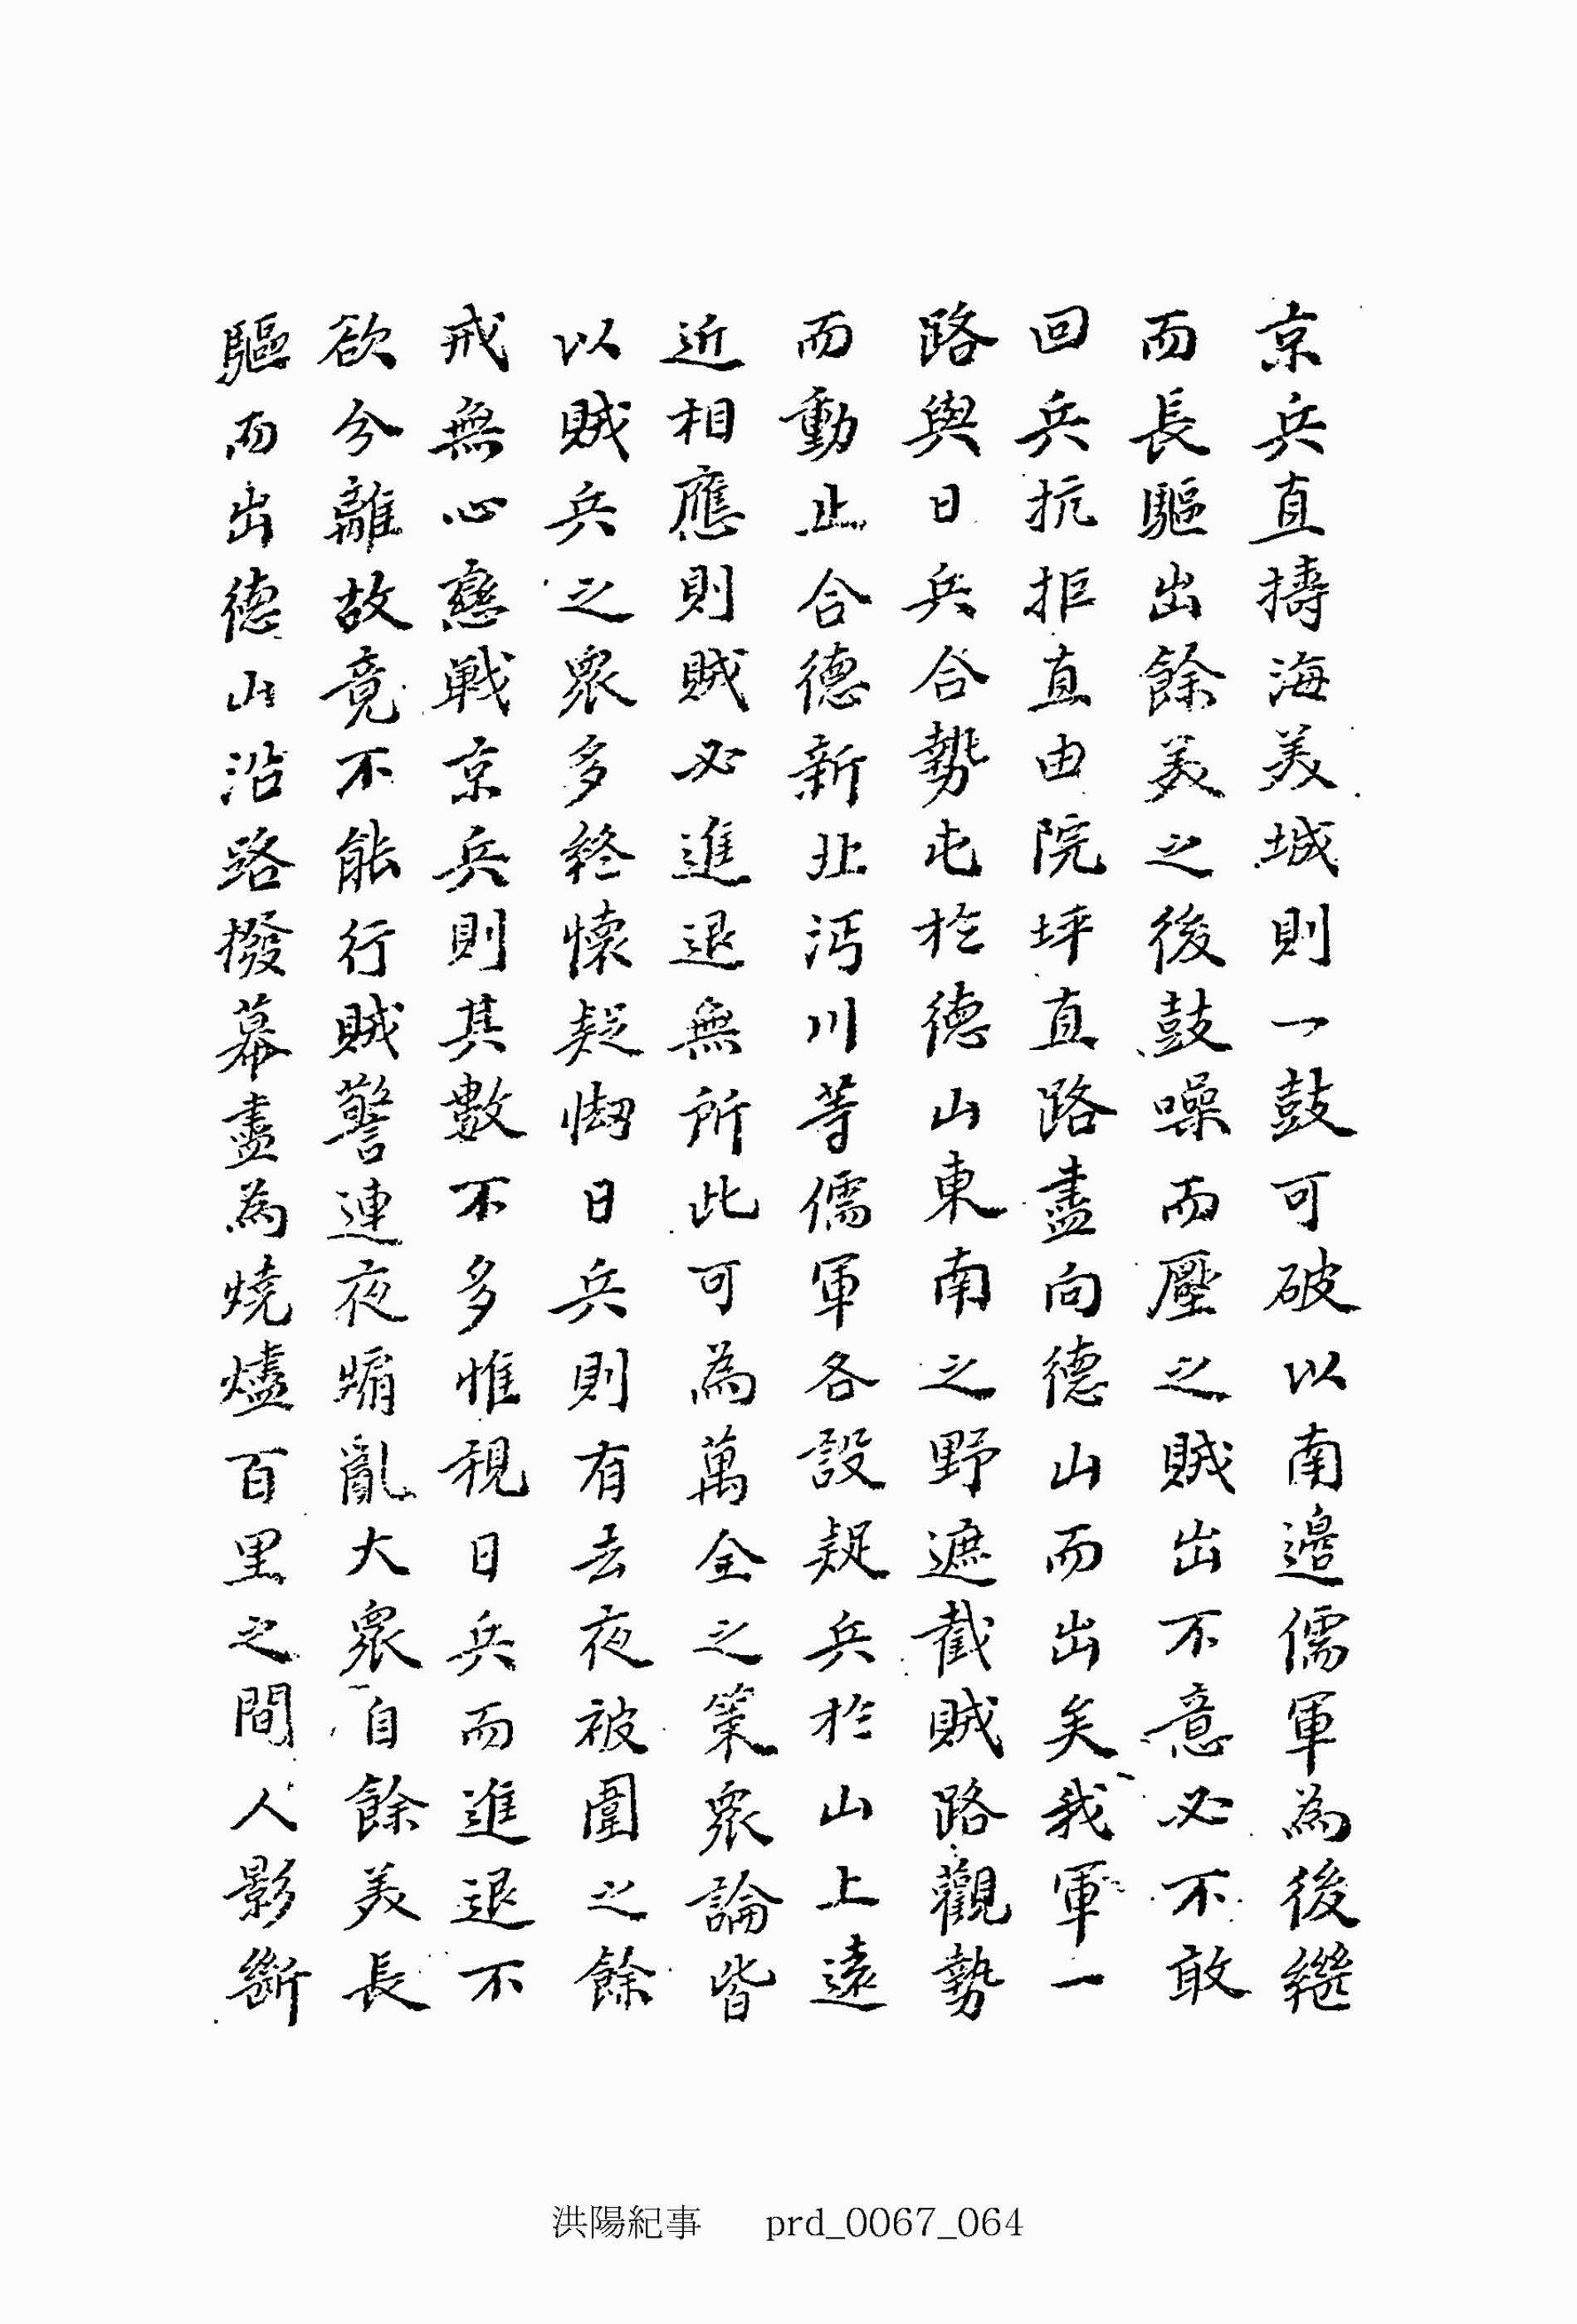 京兵直擣海美城則一鼓可破以南邉儒軍為後繼
而長驅出餘美之後鼓噪而壓之賊出不意必不敢
回兵抗拒直由院坪直路盡向德山而出矣我軍一
路與日兵合勢屯於德山東南之野遮截賊路觀勢
而動止合德新北沔川等儒軍各設疑兵於山上遠
近相應則賊必進退無所此可為萬全之策衆論皆
以賊兵之衆多終懷疑㥘日兵則有去夜被圍之餘
戒無心戀戰京兵則其數不多惟視日兵而進退不
欲分離故竟不能行賊警連夜煽亂大衆自餘美長
驅而出德山沿路撥幕盡為燒燼百里之間人影斷
洪陽紀事 prd_0067_064